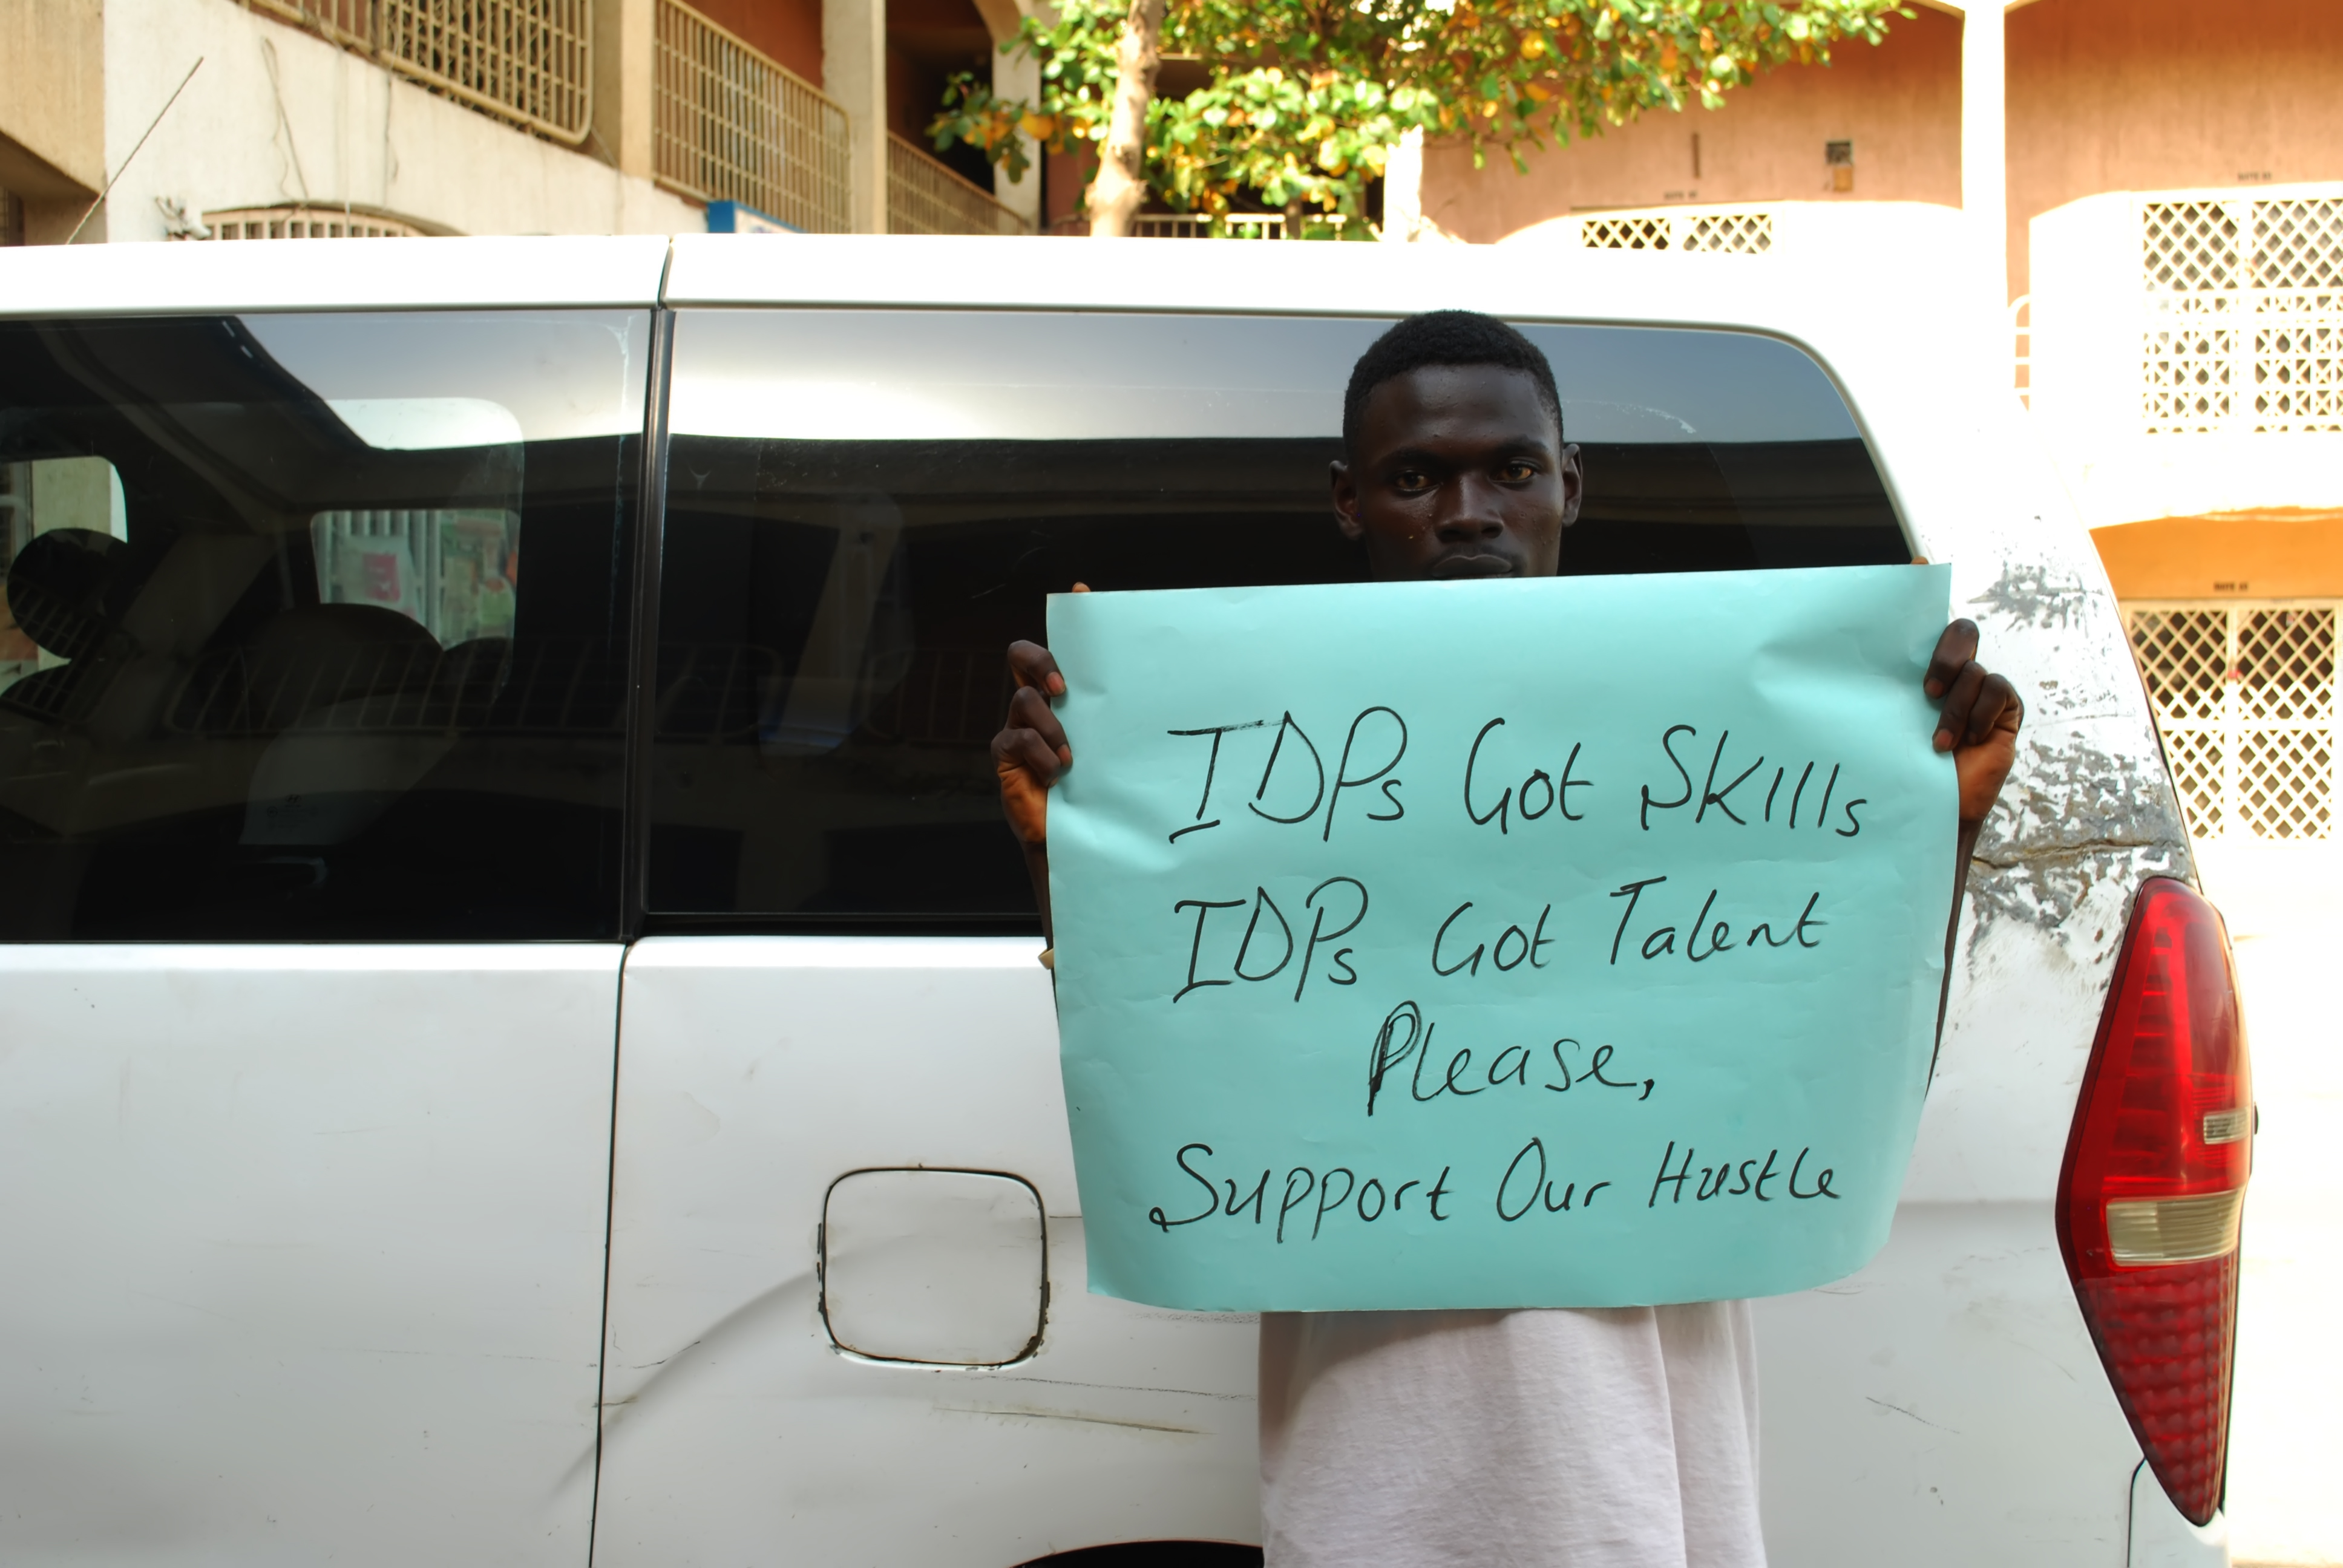 IDPs Got Skills
IDPs Got Talent
Please,
Support Our Hustle